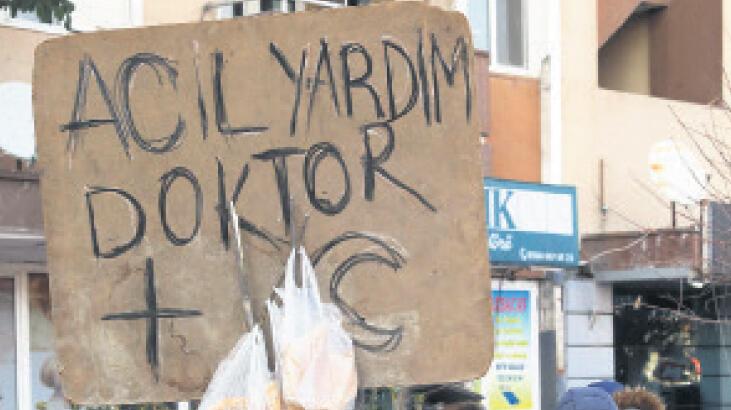 ACİL YARDIM
DOKTOR
+
K